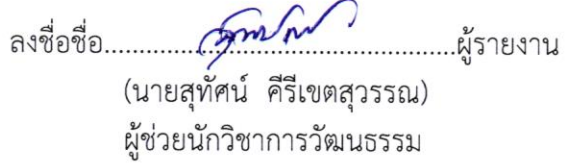 ลงชื่อชื่อ..............................................ผู้รายงาน
(นายสุทัศน์ คีรีเขตสุวรรณ)
ผู้ช่วยนักวิชาการวัฒนธรรม